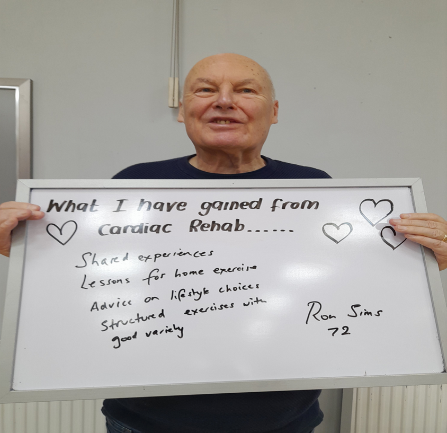 What I have gained from
Cardiac Rehab......
Shared experiences
Lessons for home exercise
Advice on lifestyle choices
Structured exercises with
good variety
Ron Sims
72